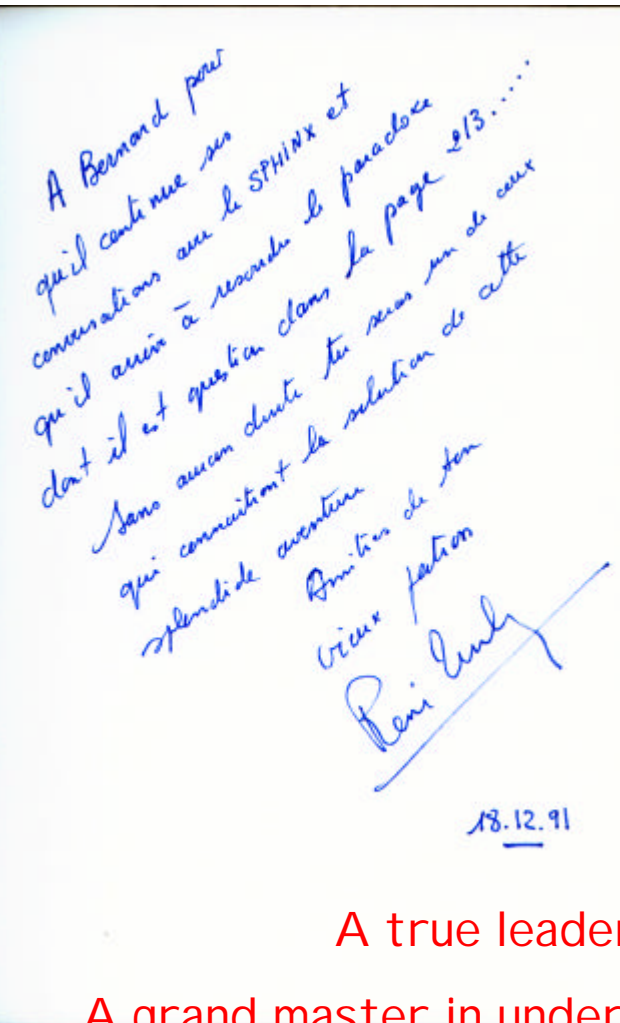 A Bernard pour
qu'il continue ses
conversations avec le SPHINX et
qu'il arrive à resoudre le paradoxe
dont il est question dans la page 213.....
Sans aucun doute tu seras un de ceux
qui connaitront la solution de cette
splendide aventure
Amitiés de ton
vieux
René
18.12.91
A true leader
A grand master in under